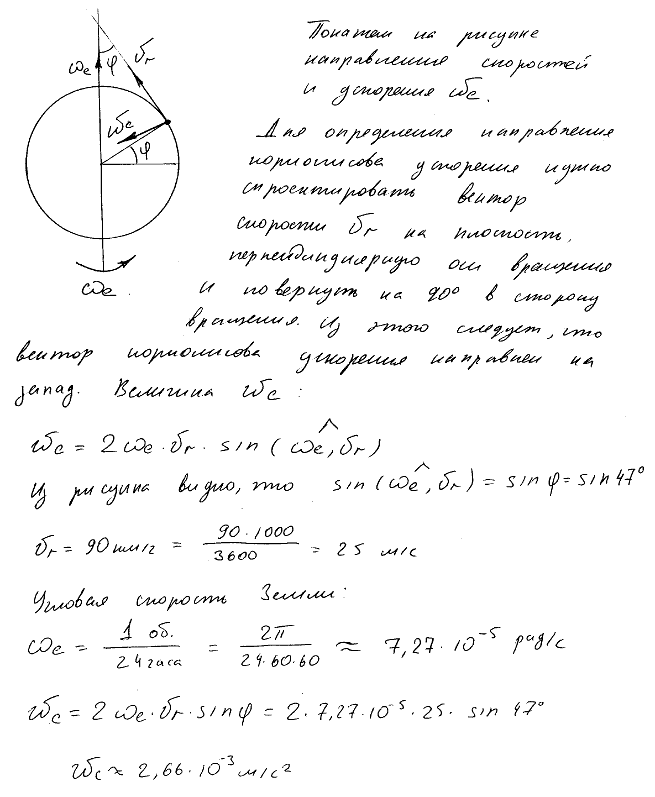 Покажем на рисунке
направление скоростей
и ускорения ωc.
ωe φ vr
ωc
φ
ωe
Для определения направления
кориолисова ускорения нужно
спроектировать вектор
скорости vr на плоскость,
перпендикулярную оси вращения
и повернуть на 90° в сторону
вращения. Из этого следует, что
вектор кориолисова ускорения направлен на
запад. Величина ωc :
ωc = 2ωe·vr·sin(ωe,^vr)
Из рисунка видно, что sin(ωe,^vr) = sin φ = sin 47°
vr = 90 км/ч = 90·1000/3600 = 25 м/с
Угловая скорость Земли:
ωe = 1 об./24 часа = 2π/24·60·60 ≈ 7,27·10⁻⁵ рад/с
ωc = 2ωe·vr·sin φ = 2·7,27·10⁻⁵·25·sin 47°
ωc ≈ 2,66·10⁻³ м/с²